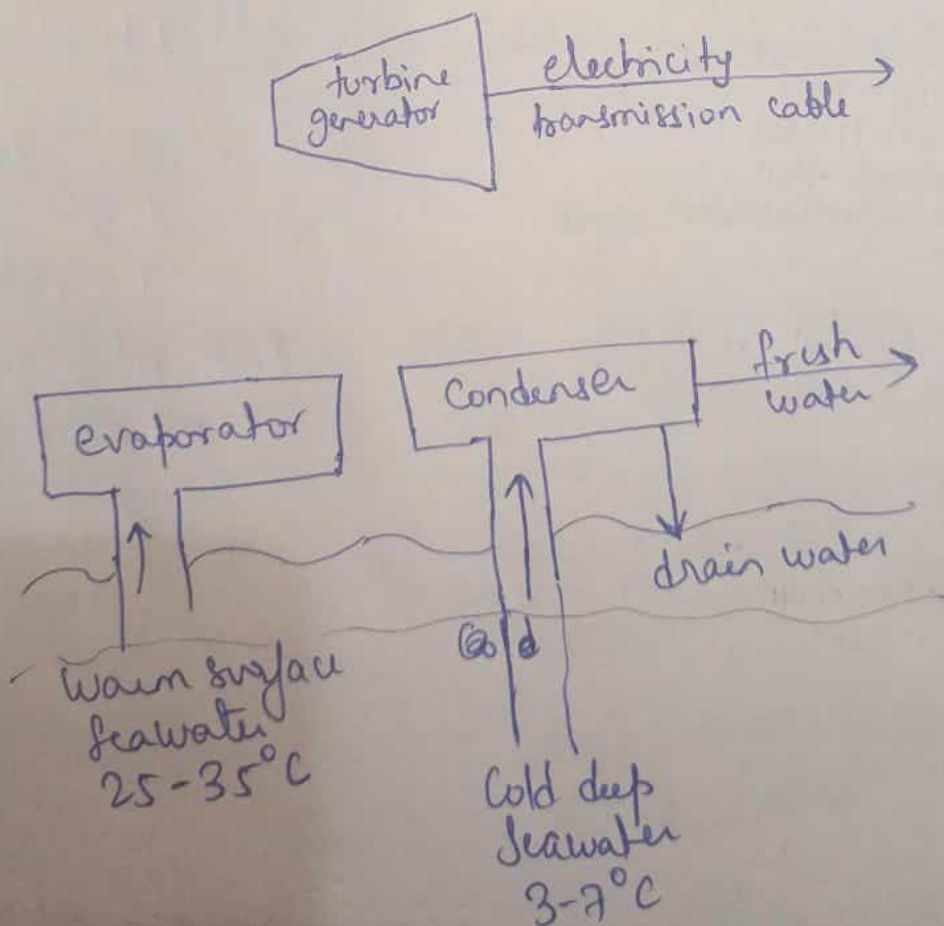 turbine
generator
electricity
transmission cable
evaporator
Condenser
fresh
water
drain water
Warm surface
seawater
25-35°C
Cold deep
seawater
3-7°C